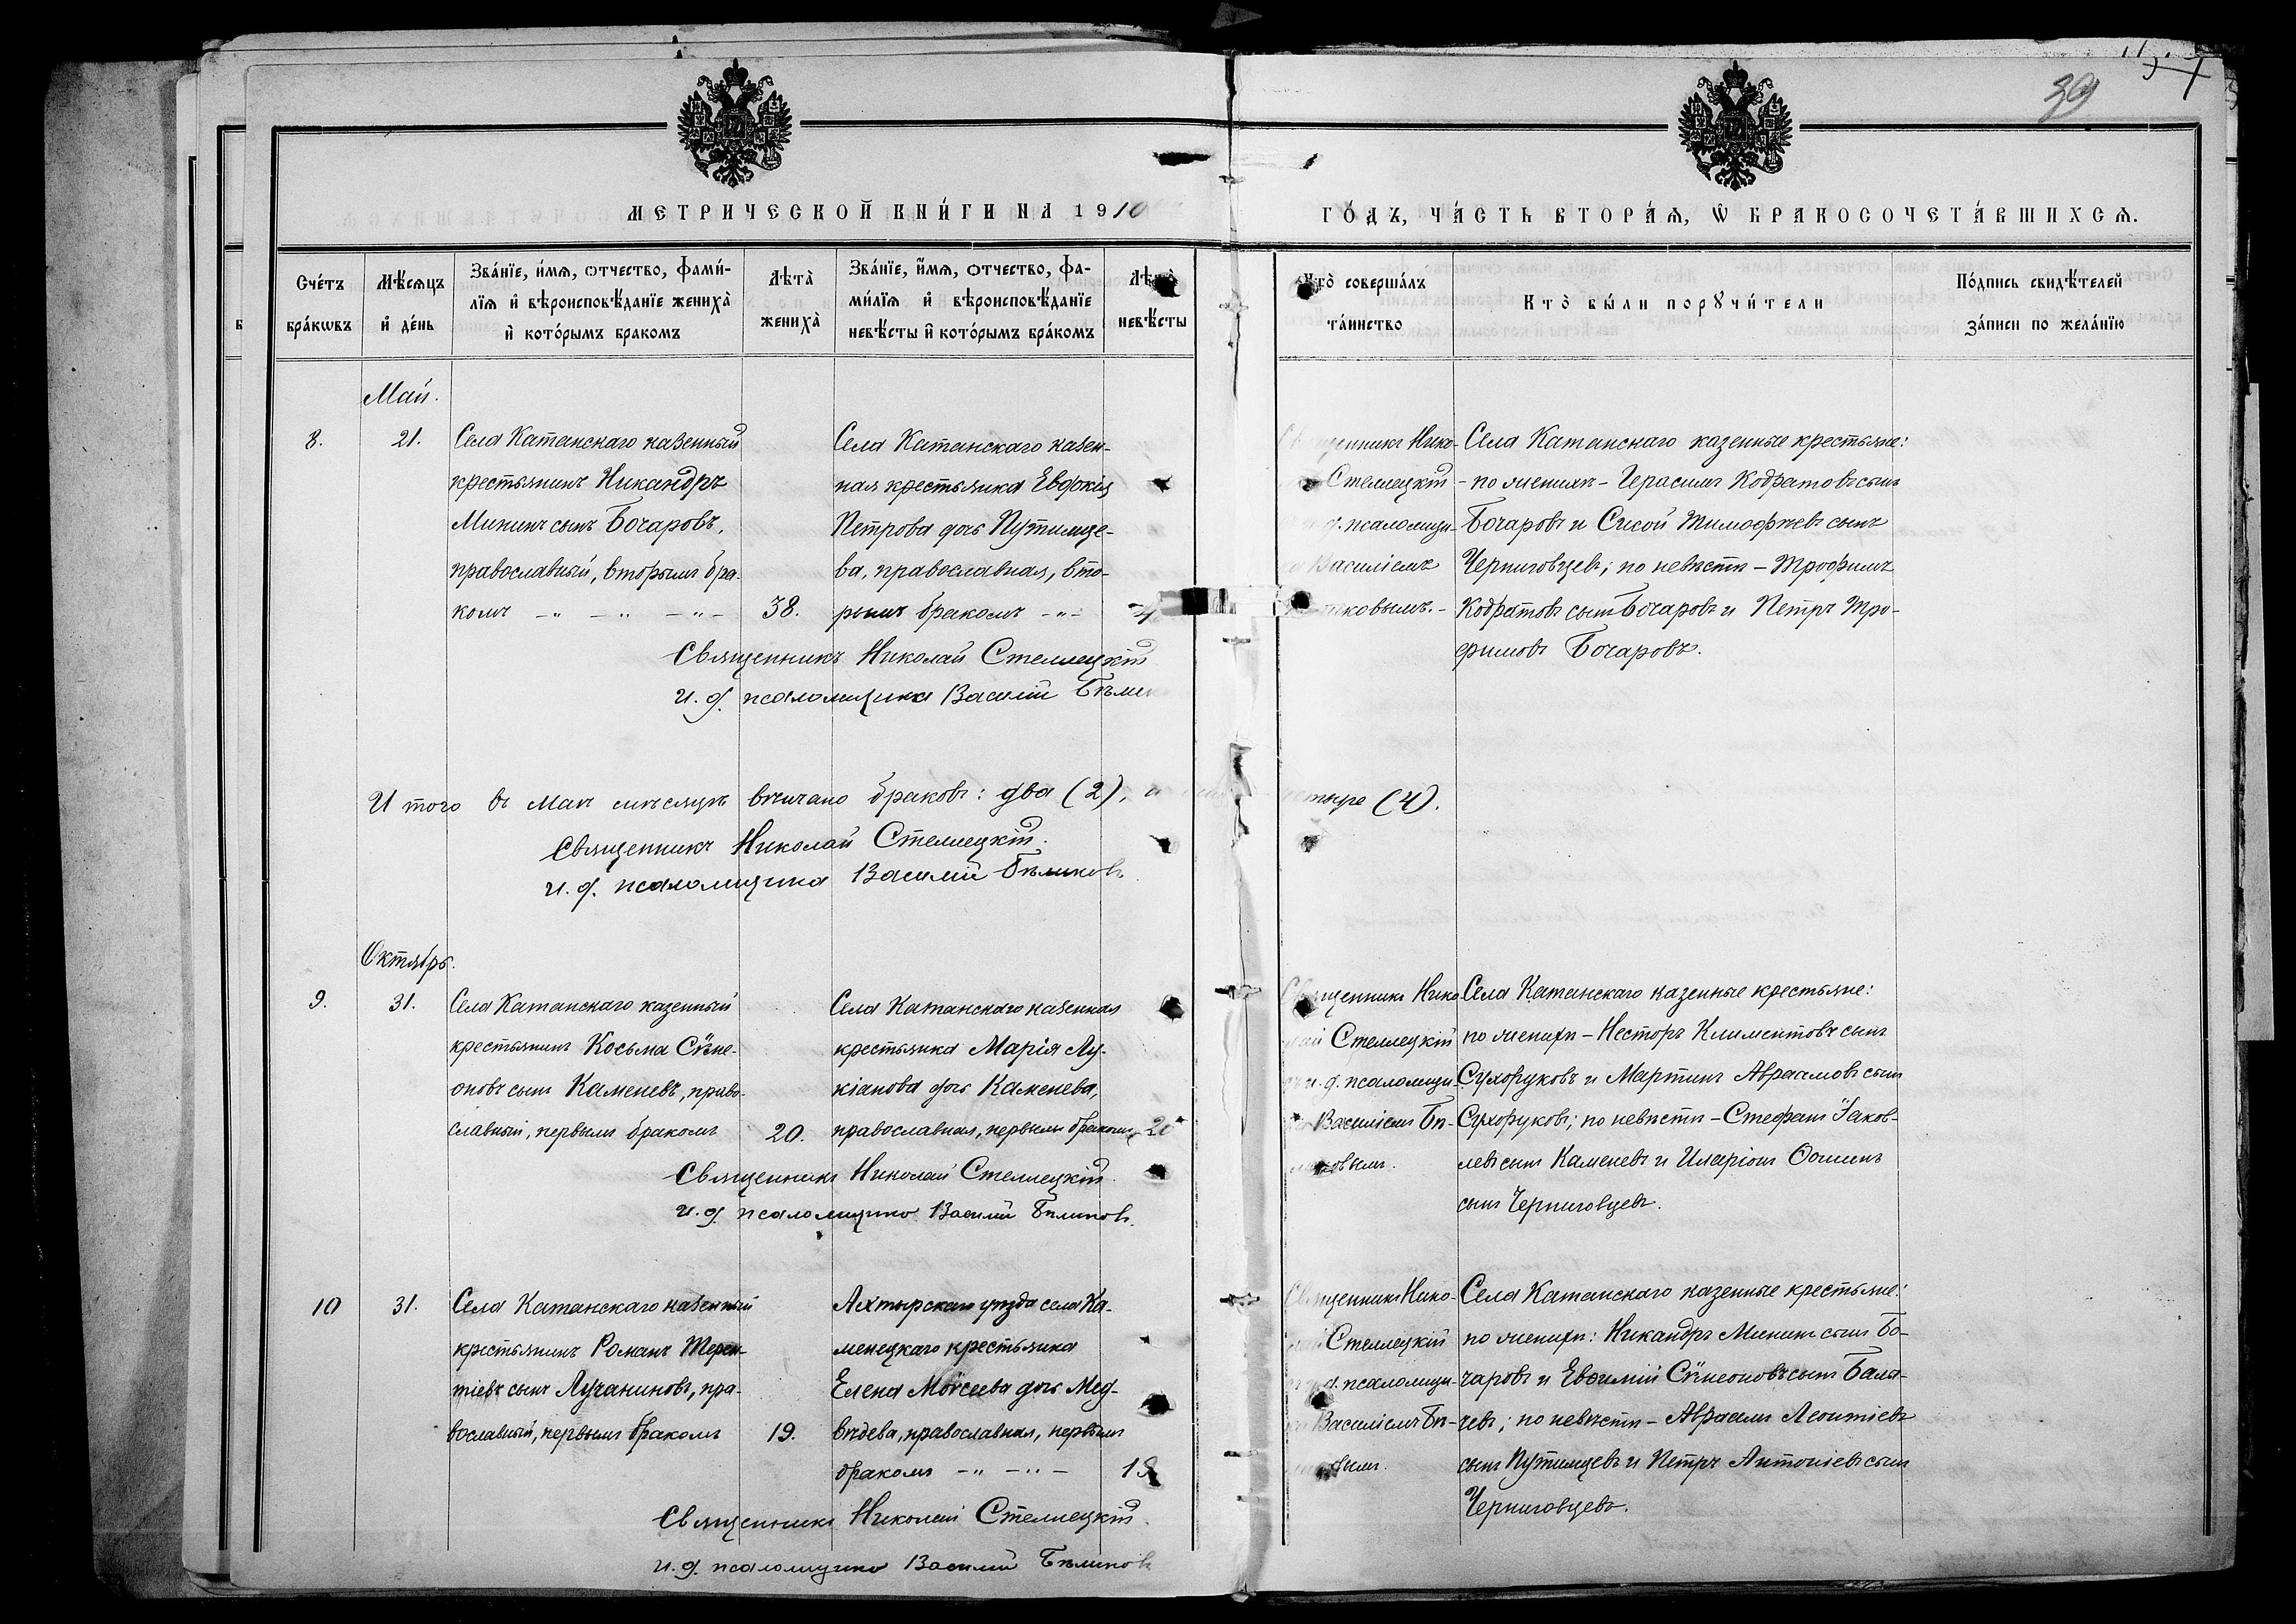 39
МЕТРИЧЕСКОЙ КНИ́ГИ НА 1910
ГО́ДЪ, ЧА́СТЬ ВТОРА́Ѧ, Ѽ БРАКОСОЧЕТА́ВШИХСѦ.
Сче́тъ бра́кѡвъ
Мѣ́сѧцъ и҆ де́нь
Зва́нїе, и҆́мѧ, ѻтчество, фами́-
лїѧ и҆ вѣроисповѣ́данїе жениха̀
и҆ кото́рымъ бракомъ
Лѣта̀ жениха̀
Зва́нїе, и҆́мѧ, ѻтчество, фа-
ми́лїѧ и҆ вѣроисповѣ́данїе
невѣ́сты и҆ кото́рымъ бра́комъ
невѣ́сты
совершалъ
та́инство
Кто̀ бы́ли порꙋчи́тели
По́дпись свидѣ́телей
за́писи по жела́нїю
Май.
8.
21.
Села Катанскаго казенный
крестьянинъ Никандръ
Мининъ сынъ Бочаровъ,
православный, вторымъ бра-
комъ
38.
Села Катанскаго казен-
ная крестьянка Евфокія
Петрова дочь Путимце-
ва, православная, вто-
рымъ бракомъ
Нико-
Стеллецкій
псаломщи-
Василіемъ
Села Катанскаго казенные крестьяне:
по женихѣ - Герасимъ Кодратовъ сынъ
Бочаровъ и Сисой Тимофѣевъ сынъ
Черниговцевъ; по невѣстѣ - Трофимъ
Кодратовъ сынъ Бочаровъ и Петръ Тро-
фимовъ Бочаровъ.
Священникъ Николай Стеллецкій
и. д. псаломщика Василій
И того въ маѣ мѣсяцѣ вѣнчано браковъ: два (2),
(4).
Священникъ Николай Стеллецкій.
и. д. псаломщика Василій Бѣликовъ
Октябрь.
9.
31.
Села Катанскаго казенный
крестьянинъ Косьма Сѵме-
оновъ сынъ Каменевъ, право-
славный, первымъ бракомъ
20.
Села Катанскаго казенная
крестьянка Марія Лу-
кіанова дочь Каменева,
православная, первымъ бракомъ
20
Нико
Стеллецкій
и. д. псаломщи-
Василіемъ Бѣ-
Села Катанскаго казенные крестьяне:
по женихѣ - Несторъ Климентовъ сынъ
Сухоруковъ и Мартинъ Авраамовъ сынъ
Сухоруковъ; по невѣстѣ - Стефанъ Іаков-
левъ сынъ Каменевъ и Иларіонъ Ѳоминъ
сынъ Черниговцевъ.
Священникъ Николай Стеллецкій.
и. д. псаломщика Василій Бѣликовъ.
10
31.
Села Катанскаго казенный
крестьянинъ Романъ Терен-
тіевъ сынъ Лучаниновъ, пра-
вославный, первымъ бракомъ
19.
Ахтырскаго уѣзда села Ка-
менецкаго крестьянка
Елена Моѵсеева дочь Мед-
вѣдева, православная, первымъ
бракомъ
Нико-
Стеллецкій
псаломщи-
Василіемъ Бѣ-
Села Катанскаго казенные крестьяне:
по женихѣ: Никандръ Мининъ сынъ Бо-
чаровъ и Евѳимій Сѵмеоновъ сынъ Бала-
чевъ; по невѣстѣ - Авраамъ Леонтіевъ
сынъ Путимцевъ и Петръ Антоніевъ сынъ
Черниговцевъ.
Священникъ Николай Стеллецкій.
и. д. псаломщика Василій Бѣликовъ